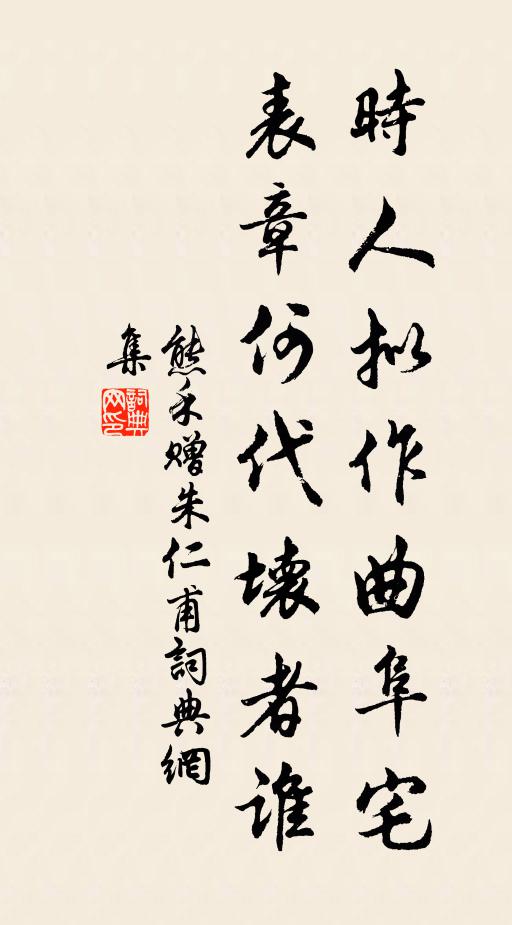 時人拟作曲阜宅
表章何代壊者誰
熊禾赠朱仁甫詞典網
集
詞典
网印